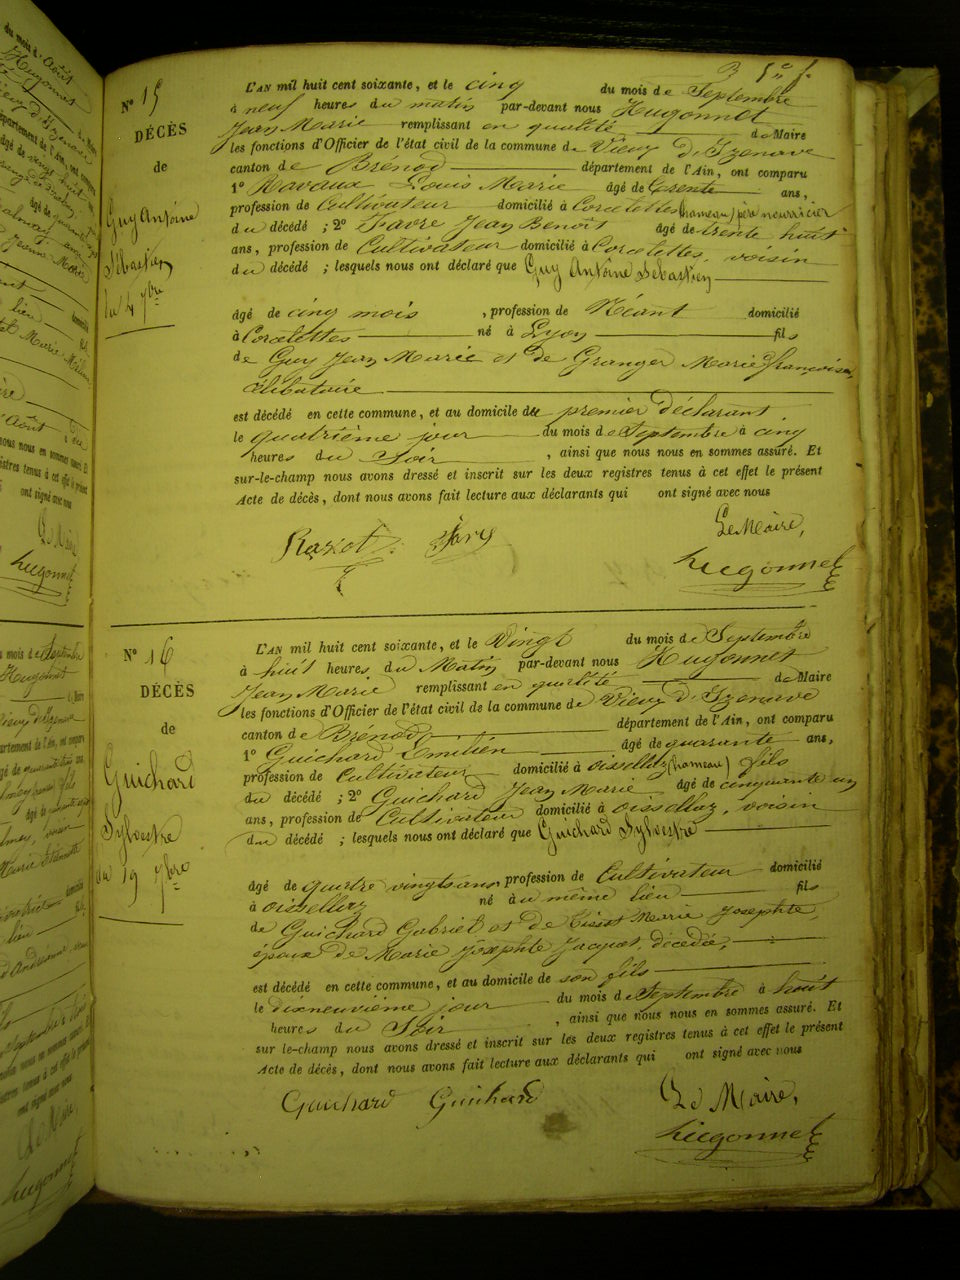 N° 15
DÉCÈS
de
Guy Antoine
Sébastien
du 4 7bre
L'AN mil huit cent soixante, et le cinq du mois de Septembre
à neuf heures du matin par-devant nous Hugonnet
Jean Marie remplissant en qualité de Maire
les fonctions d'Officier de l'état civil de la commune de Vieux d'Izenave
canton de Brénod département de l'Ain, ont comparu
1° Ravaux Louis Marie âgé de trente ans,
profession de Cultivateur domicilié à Corcelettes (hameau) père nourricier
du décédé ; 2° Favre Jean Benoît âgé de trente huit
ans, profession de Cultivateur domicilié à Corcelettes, voisin
du décédé ; lesquels nous ont déclaré que Guy Antoine Sébastien
âgé de cinq mois , profession de Néant domicilié
à Corcelettes né à Lyon fils
de Guy Jean Marie et de Granger Marie françoise,
célibataire
est décédé en cette commune, et au domicile du premier déclarant.
le quatrième jour du mois de Septembre à cinq
heures du Soir , ainsi que nous nous en sommes assuré. Et
sur-le-champ nous avons dressé et inscrit sur les deux registres tenus à cet effet le présent
Acte de décès, dont nous avons fait lecture aux déclarants qui ont signé avec nous
Le Maire,
hugonnet
N° 16
DÉCÈS
de
Guichard
Sylvestre
du 19 7bre
L'AN mil huit cent soixante, et le Vingt du mois de Septembre
à huit heures du Matin par-devant nous Hugonnet
Jean Marie remplissant en qualité de Maire
les fonctions d'Officier de l'état civil de la commune de Vieux d'Izenave
canton de Brénod département de l'Ain, ont comparu
1° Guichard Emilien âgé de quarante ans,
profession de Cultivateur domicilié à oisselaz (hameau) fils
du décédé ; 2° Guichard Jean Marie âgé de cinquante un
ans, profession de Cultivateur domicilié à oissellaz, voisin
du décédé ; lesquels nous ont déclaré que Guichard Sylvestre
âgé de quatre vingt ans, profession de Cultivateur domicilié
à oissellaz né au même lieu fils
de Guichard Gabriel et de Tissot Marie Josephte,
époux de Marie Josephte Jacquet, décédé,
est décédé en cette commune, et au domicile de son fils
le dixneuvième jour du mois de Septembre à huit
heures du Soir , ainsi que nous nous en sommes assuré. Et
sur le-champ nous avons dressé et inscrit sur les deux registres tenus à cet effet le présent
Acte de décès, dont nous avons fait lecture aux déclarants qui ont signé avec nous
Guichard Guichard Le Maire,
hugonnet